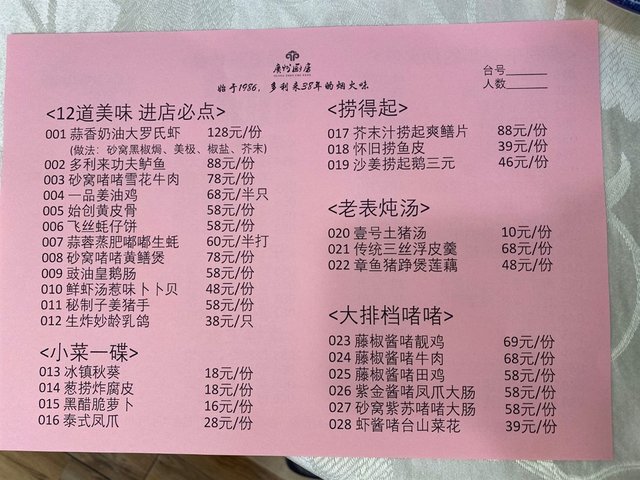 廣州厨房
始于1986，多利来38年的烟火味
台号______
人数______
<12道美味 进店必点>
001 蒜香奶油大罗氏虾 128元/份
(做法：砂窝黑椒焗、美极、椒盐、芥末)
002 多利来功夫鲈鱼 88元/份
003 砂窝啫啫雪花牛肉 78元/份
004 一品姜油鸡 68元/半只
005 始创黄皮骨 58元/份
006 飞丝蚝仔饼 58元/份
007 蒜蓉蒸肥嘟嘟生蚝 60元/半打
008 砂窝啫啫黄鳝煲 78元/份
009 豉油皇鹅肠 58元/份
010 鲜虾汤惹味卜卜贝 48元/份
011 秘制子姜猪手 58元/份
012 生炸妙龄乳鸽 38元/只
<小菜一碟>
013 冰镇秋葵 18元/份
014 葱捞炸腐皮 18元/份
015 黑醋脆萝卜 16元/份
016 泰式凤爪 28元/份
<捞得起>
017 芥末汁捞起爽鳝片 88元/份
018 怀旧捞鱼皮 39元/份
019 沙姜捞起鹅三元 46元/份
<老表炖汤>
020 壹号土猪汤 10元/份
021 传统三丝浮皮羹 68元/份
022 章鱼猪踭煲莲藕 48元/份
<大排档啫啫>
023 藤椒酱啫靓鸡 69元/份
024 藤椒酱啫牛肉 68元/份
025 藤椒酱啫田鸡 58元/份
026 紫金酱啫凤爪大肠 58元/份
027 砂窝紫苏啫啫大肠 58元/份
028 虾酱啫台山菜花 39元/份